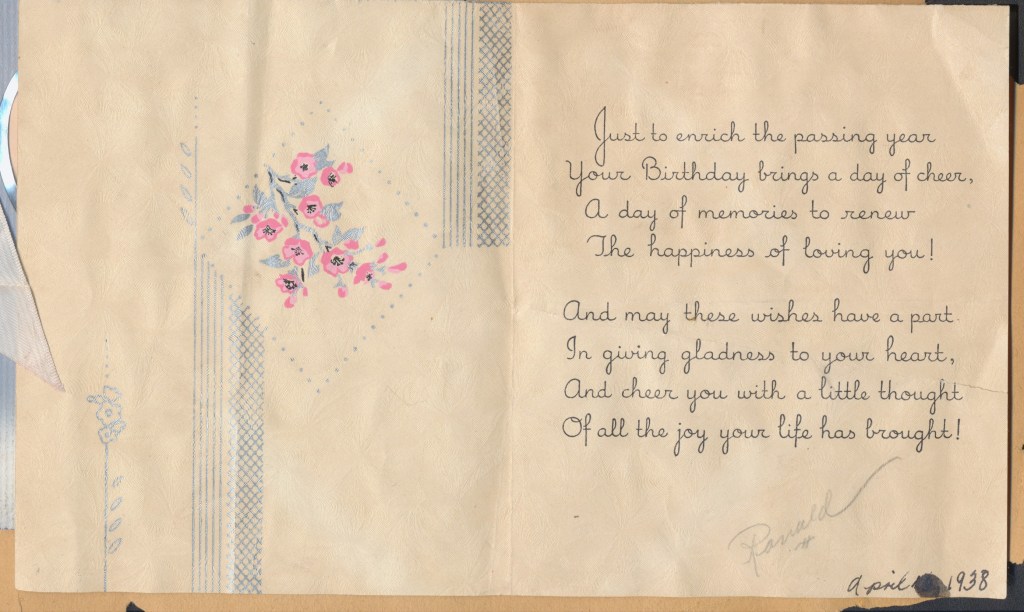 Just to enrich the passing year
Your Birthday brings a day of cheer,
A day of memories to renew
The happiness of loving you!
And may these wishes have a part
In giving gladness to your heart,
And cheer you with a little thought
Of all the joy your life has brought!
Ronald
April 1938